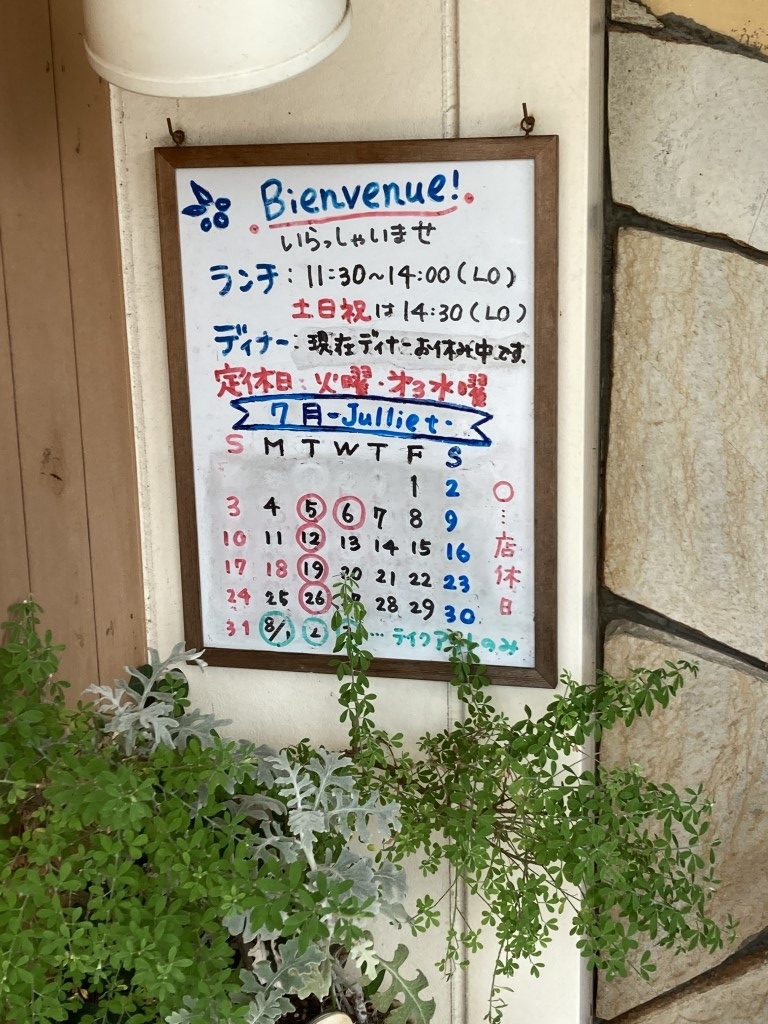 Bienvenue!
いらっしゃいませ
ランチ：11:30～14:00(LO)
土日祝は14:30(LO)
ディナー：現在ディナーお休み中です.
定休日：火曜・才3水曜
7月-Julliet-
S M T W T F S
1 2
3 4 5 6 7 8 9
10 11 12 13 14 15 16
17 18 19 20 21 22 23
24 25 26 28 29 30
31 8/1 2 … テイクアウトのみ
○…店休日